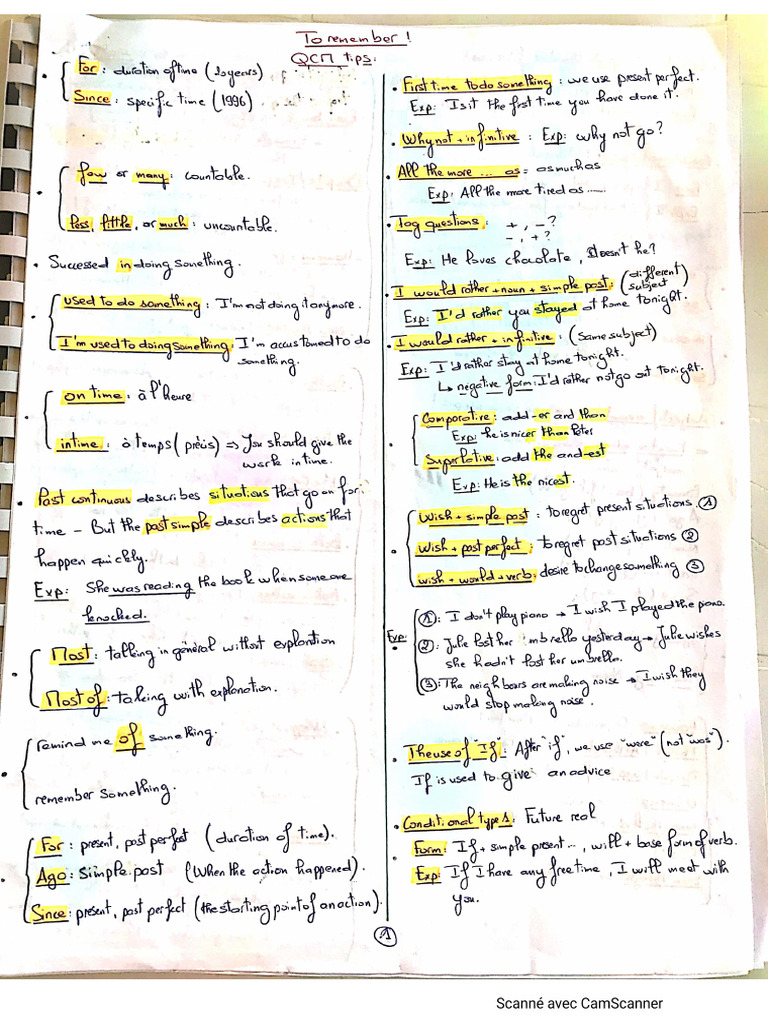 To remember!
QCM tips:
For: duration of time (20 years)
Since: specific time (1996)
few or many: countable.
less, little, or much: uncountable.
Successed in doing something.
used to do something: I'm not doing it anymore.
I'm used to doing something: I'm accustomed to do
something.
on time: à l'heure
intime: à temps (précis) ⇒ You should give the
work in time.
Past continuous describes situations that go on for
time - But the past simple describes actions that
happen quickly.
Exp: She was reading the book when someone
knocked.
Most: talking in général without explantion
Most of: talking with explanation.
remind me of something.
remember something.
For: present, past perfect (duration of time).
Ago: Simple past (When the action happened).
Since: present, past perfect (the starting point of an action).
First time to do something: we use present perfect.
Exp: Is it the first time you have done it.
Why not + infinitive: Exp: why not go?
All the more ... as = as much as
Exp: All the more tired as .....
Tag questions: +, -?
-, +?
Exp: He loves chocolate, doesn't he?
I would rather + noun + simple past: (different
subject)
Exp: I'd rather you stayed at home tonight.
I would rather + infinitive: (same subject)
Exp: I'd rather stay at home tonight.
↳ negative form: I'd rather not go out tonight.
Comparative: add -er and than
Exp: he is nicer than Peter
Superlative: add the and -est
Exp: He is the nicest.
Wish + simple past: to regret present situations. ①
wish + past perfect: to regret past situations ②
wish + would + verb: desire to change something ③
Exp: ①: I don't play piano → I wish I played the piano.
②: Julie lost her umbrella yesterday → Julie wishes
she hadn't lost her umbrella.
③: The neighbours are making noise → I wish they
would stop making noise.
The use of "If": After "if", we use "were" (not "was").
If is used to give an advice
Conditional types: Future real
Form: If + simple present ..., will + base form of verb.
Exp: If I have any free time, I will meet with
you.
1
Scanné avec CamScanner